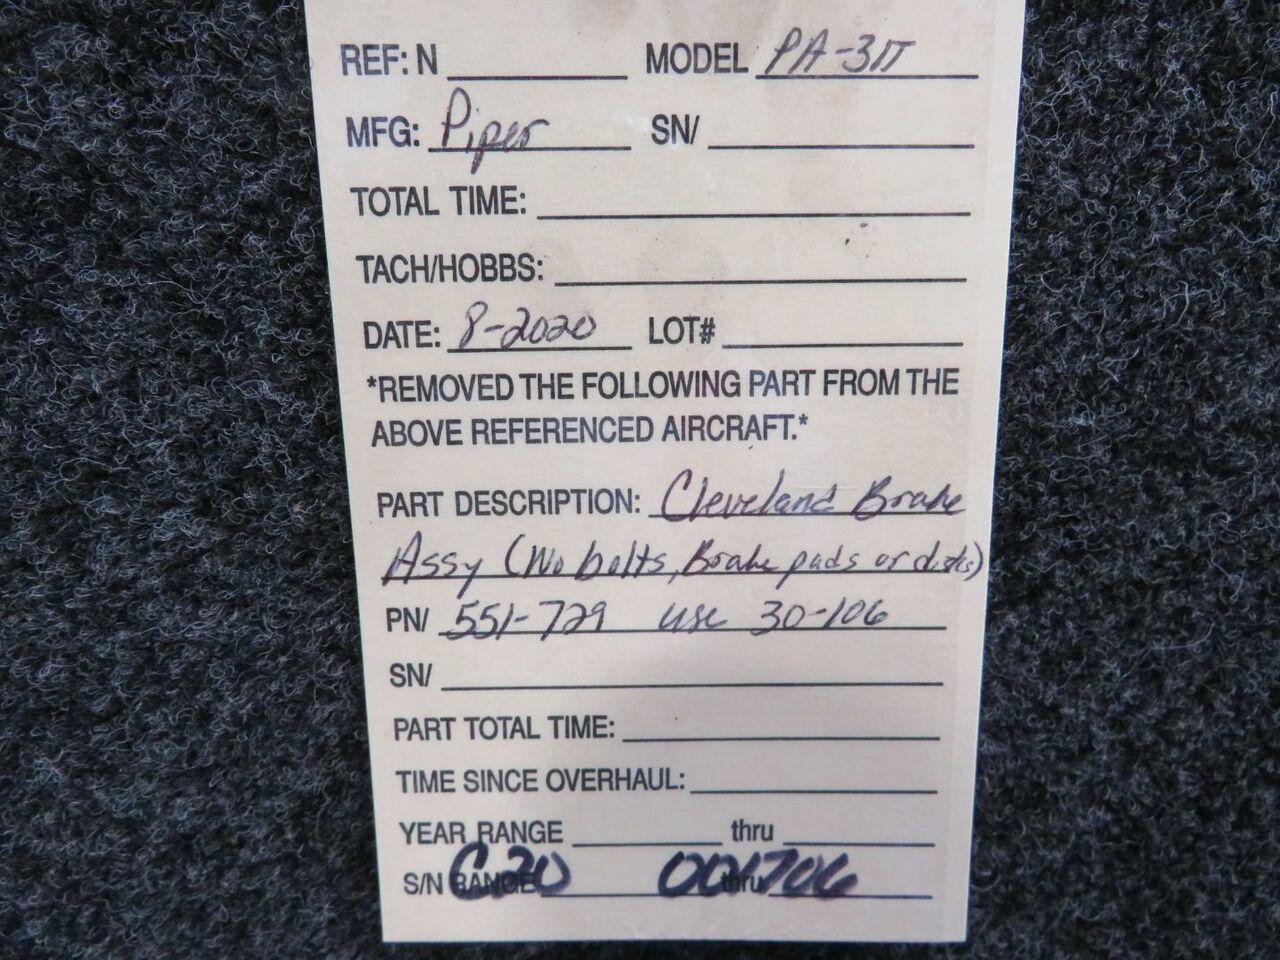 REF: N MODEL PA-31T
MFG: Piper SN/
TOTAL TIME:
TACH/HOBBS:
DATE: 8-2020 LOT#
*REMOVED THE FOLLOWING PART FROM THE
ABOVE REFERENCED AIRCRAFT.*
PART DESCRIPTION: Cleveland Brake
Assy (No bolts, Brake pads or disks)
PN/ 551-729 use 30-106
SN/
PART TOTAL TIME:
TIME SINCE OVERHAUL:
YEAR RANGE thru
S/N RANGE C20 thru 001706